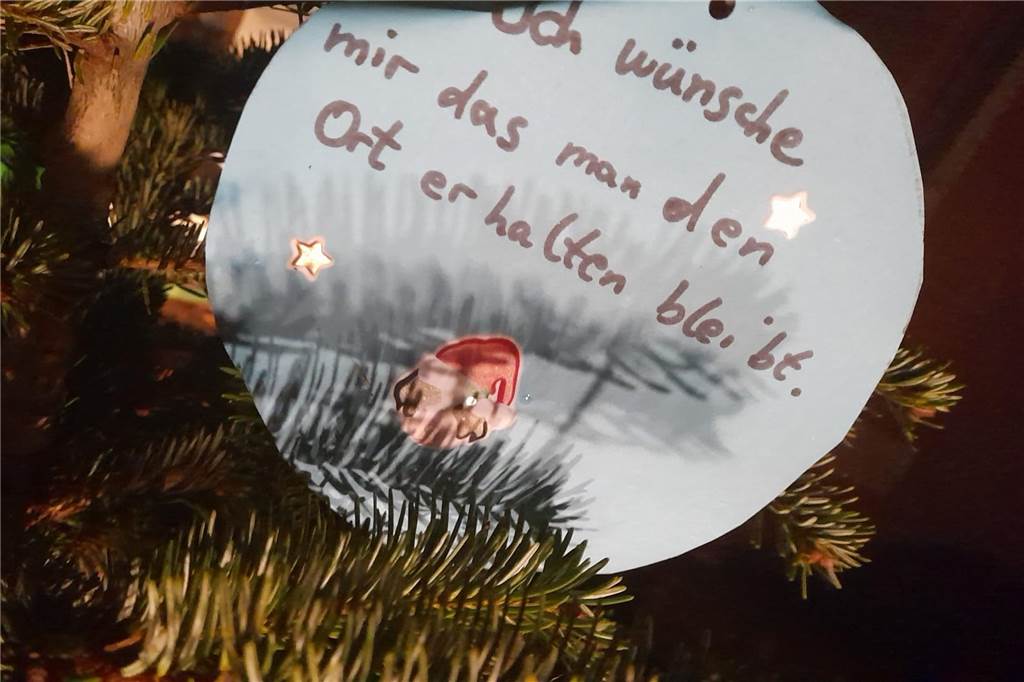 Ich wünsche
mir das man den
Ort erhalten bleibt.